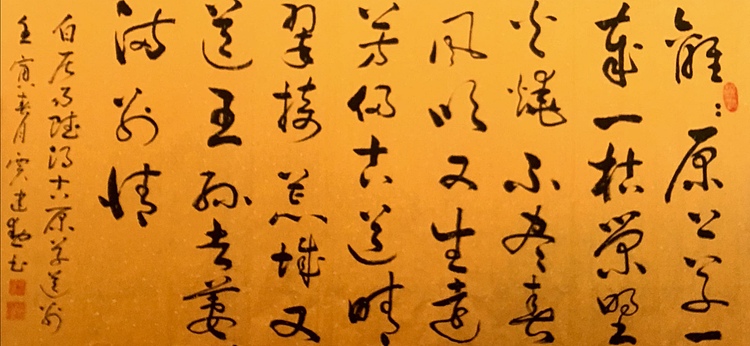 離〻原上草一
歲一枯榮野
火燒不盡春
風吹又生遠
芳侵古道晴
翠接荒城又
送王孫去萋
滿別情
白居易賦得古原草送別
壬寅春月建书